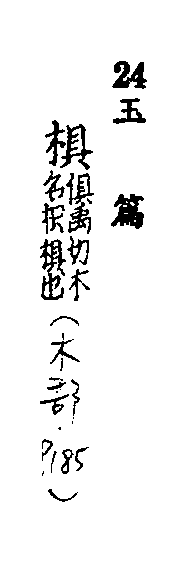 24 玉篇
椇俱禹切木名枳椇也(木部.P.185)